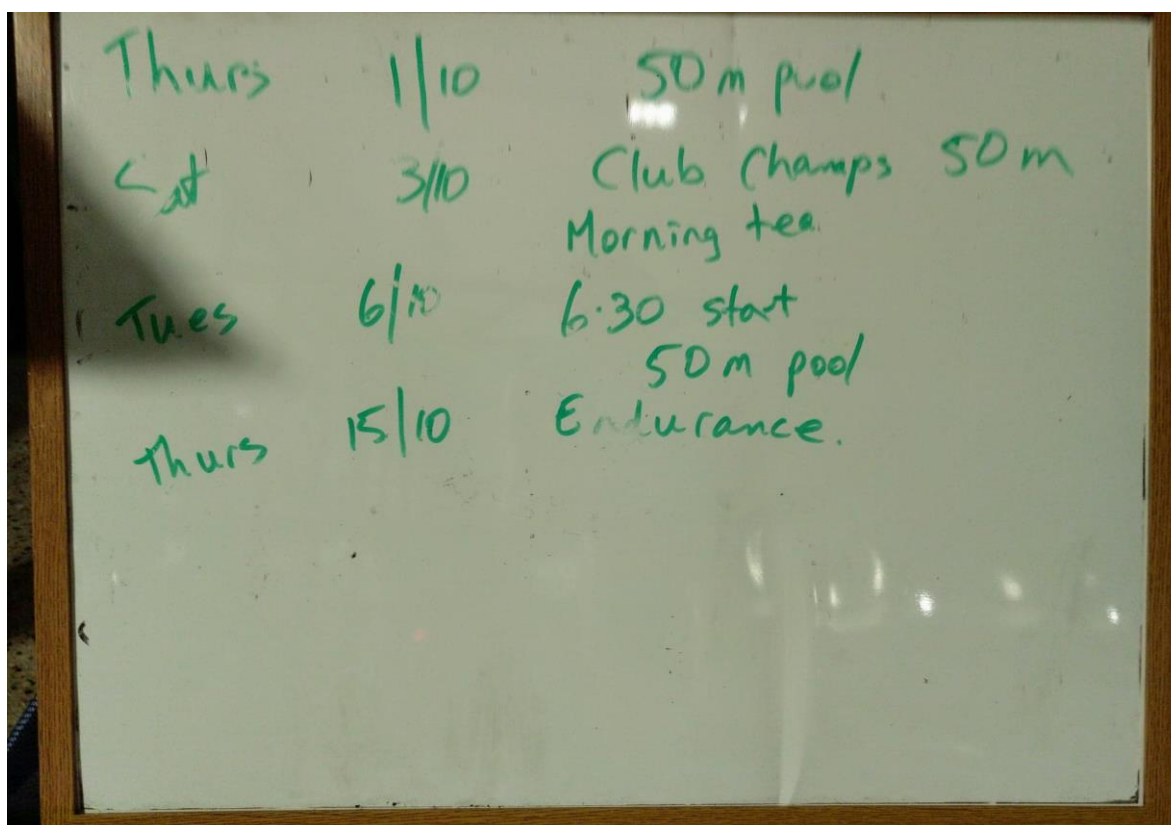 Thurs 1/10 50m pool
Sat 3/10 Club Champs 50m
Morning tea
Tues 6/10 6.30 start
50m pool
Thurs 15/10 Endurance.